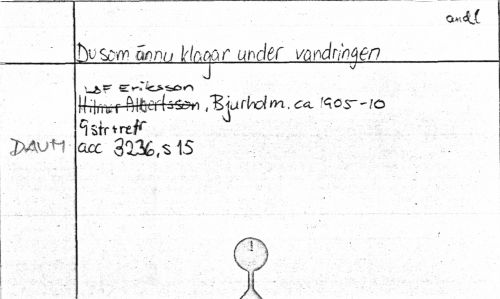 andl
Du som ännu klagar under vandringen
LAF Eriksson
Hilmer Albertsson, Bjurholm. ca 1905-10
9 str + refr
DAUM acc 3236, s 15